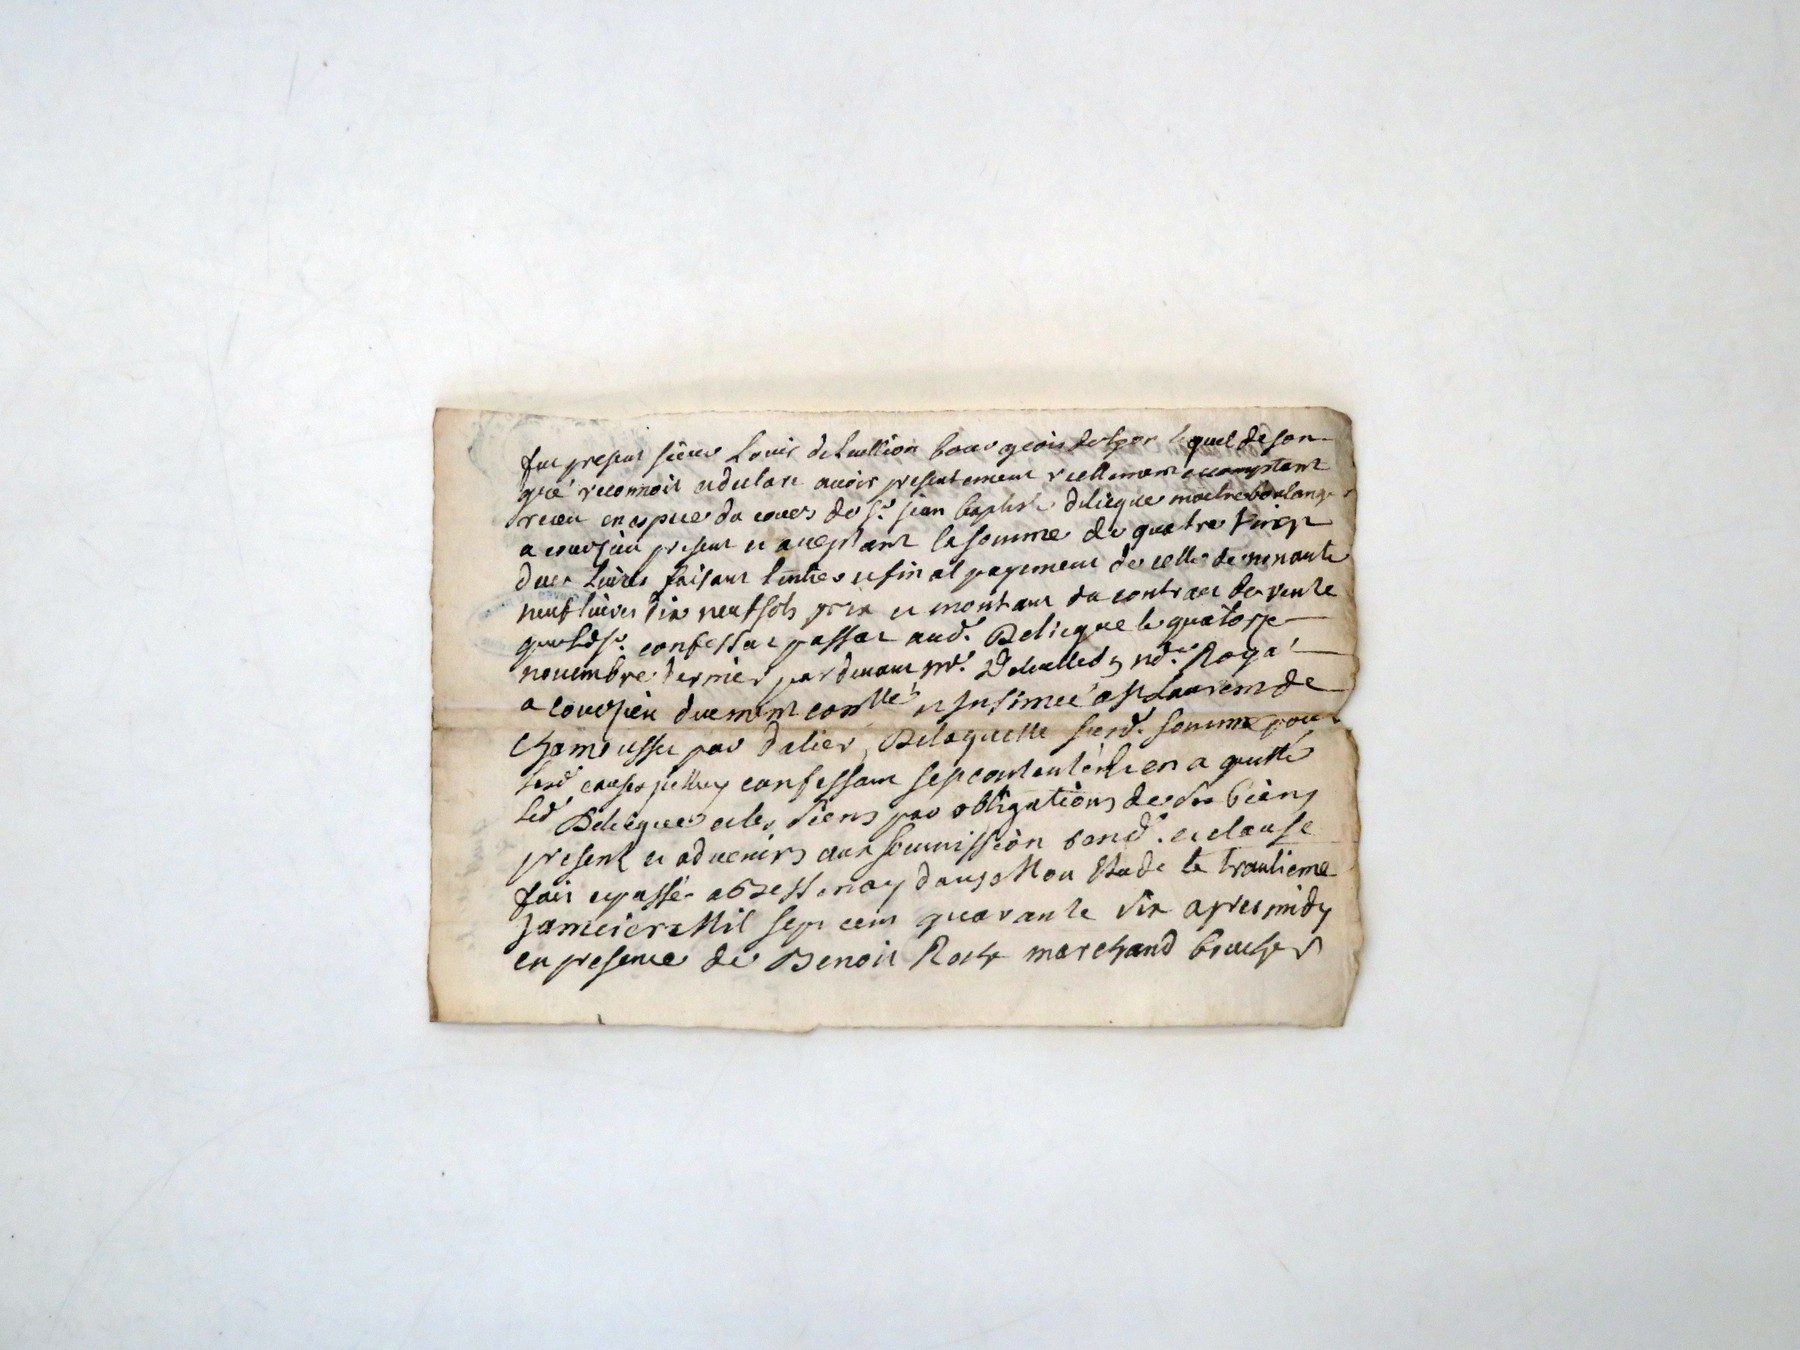 fut present sieur Louis deLuellion bourgeois de lyon lequel de son
gré reconnoit et declare avoir presentement reellement et comptant
receu en espece du cours de sr. jean baptiste delicque maitre boulanger
a courzieu present et acceptant la somme de quatre vingt
deux livres faisant l'entier et final payement de celle de nonante
neuf livres dix neuf sols prix et montant du contract de vente
que led sr. confessat passat aud. Delicque le quatorze
novembre dernier par devant me. nore. Royal
a Courzieu duement conllé et Insinué a st Laurent de
chamousset par dalier, De laquelle susd. somme pour
lesd causes confessant se contente et en a quitté
led Delicque et les siens par obligations de ses biens
present et advenirs aux soumission renond. et clause
fait et passé a Bessenay dans Mon Etude le trantieme
Janvier Mil sept cent quarante six apres midy
en presence de Benoit Roche marchand boucher